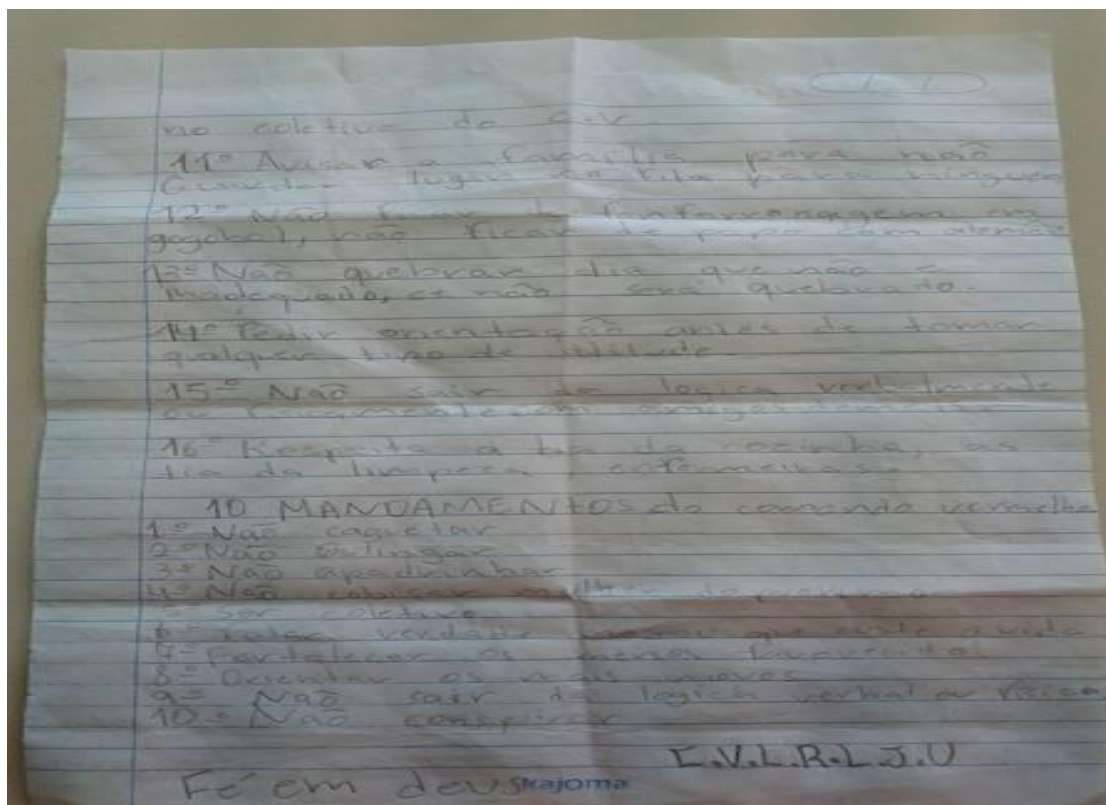 no coletivo do C.V.
11º Avisar a família para não
Guardar lugar na fila para ninguém
12º Não ficar de fanfarronagem em
não ficar de papo com alemão
13º Não quebrar dia que não é
inadequado, se não será quebrado.
14º Pedir orientação antes de tomar
qualquer tipo de atitude.
15º Não sair da logica verbalmente
ou fisicamente com
16º Respeito a tia da cozinha, as
tia da limpeza enfermeiras.
10 MANDAMENTOS do comando vermelho
1º Não caguetar
2º Não
3º Não apadrinhar
4º Não cobiçar mulher
Ser coletivo
6º Falar verdade mesmo que custe a vida
7º Fortalecer os menos favorecidos
8º Orientar os mais novos
9º Não sair da logica verbal ou física
10º Não conspirar
C.V.L.R.L.J.U
Fé em deus
kajoma